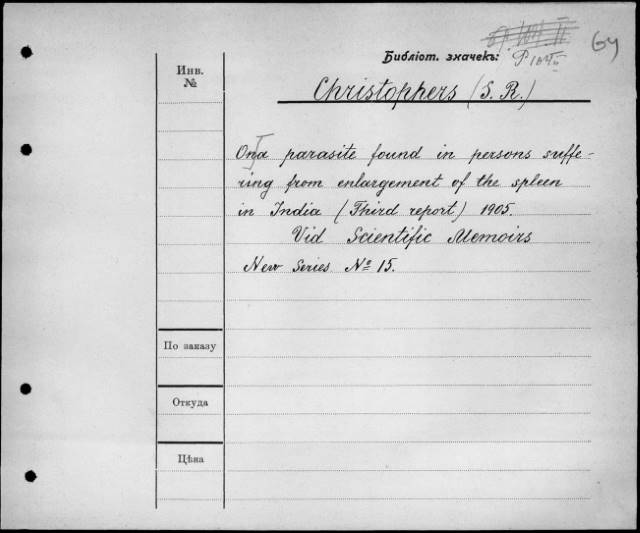 Инв.
№
Библіот. значекъ:
Christophers (S. R.)
On a parasite found in persons suffe-
ring from enlargement of the spleen
in India (Third report) 1905.
Vid Scientific Memoirs
New Series № 15.
По заказу
Откуда
Цѣна